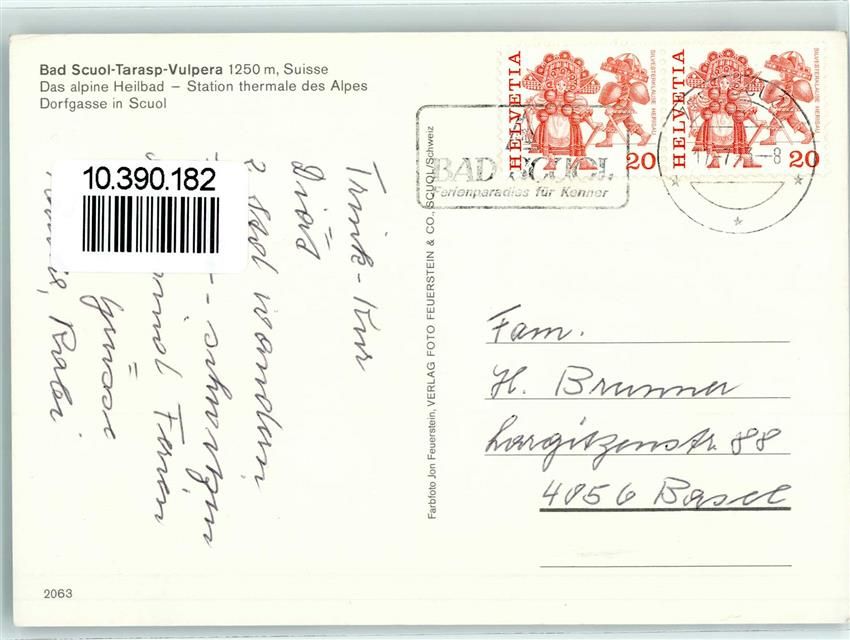 Bad Scuol-Tarasp-Vulpera 1250 m, Suisse
Das alpine Heilbad – Station thermale des Alpes
Dorfgasse in Scuol
10.390.182
Trink-Kur
Diät
2 Std wandern
schwatzen
Ferien
Grüsse
Farbfoto Jon Feuerstein, VERLAG FOTO FEUERSTEIN & CO., SCUOL/Schweiz
BAD SCUOL
Ferienparadies für Kenner
HELVETIA
20
SILVESTERKLÄUSE HERISAU
HELVETIA
20
SILVESTERKLÄUSE HERISAU
-8
Fam.
H. Brunner
Largitzenstr. 88
4056 Basel
2063